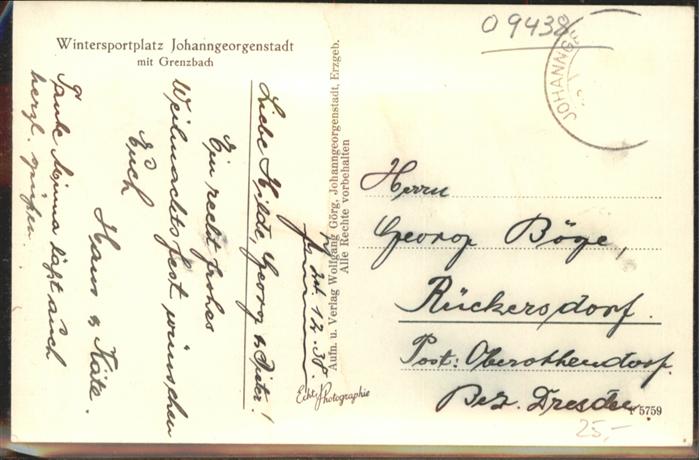 Wintersportplatz Johanngeorgenstadt
mit Grenzbach
O 9438
JOHANNGE
24. 12. 38.
Liebe Hilde, Georg & Peter!
Ein recht frohes
Weihnachtsfest wünschen
Euch
Hans & Käte.
Tante Minna läßt auch
herzl. grüßen.
Aufn. u. Verlag Wolfgang Görg, Johanngeorgenstadt, Erzgeb.
Alle Rechte vorbehalten
Echt Photographie
Herrn
Georg Böge,
Rückersdorf.
Post: Oberothendorf.
Bez. Dresden.
5759
25,-